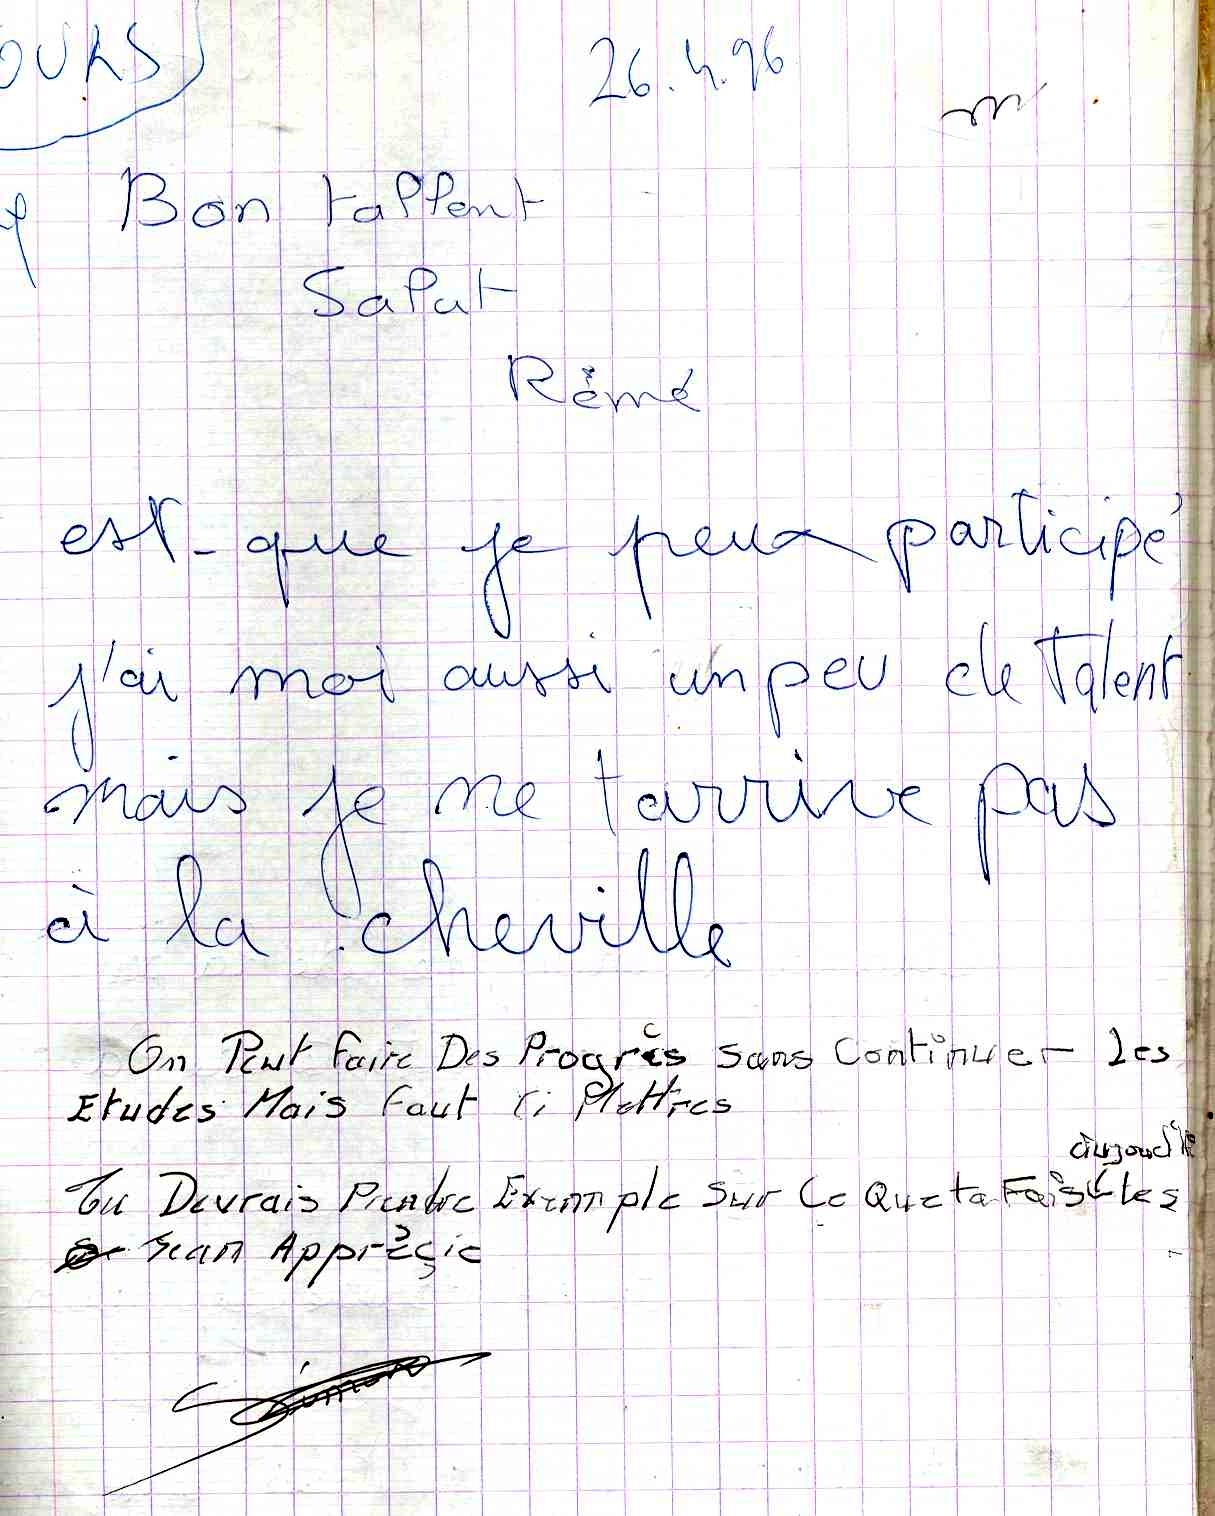 OURS
26.4.96
Bon tallent
Salut
Rémé
est-que je peux participé
j'ai moi aussi un peu de Talent
mais je ne t'arrive pas
à la cheville
On Peut Faire Des Progrès Sans Continuer Les
Etudes Mais Faut Mettres
aujourd'h
Tu Devrais Prendre Exemple Sur Ce Que ta Fais tes
Appréçie
Simon